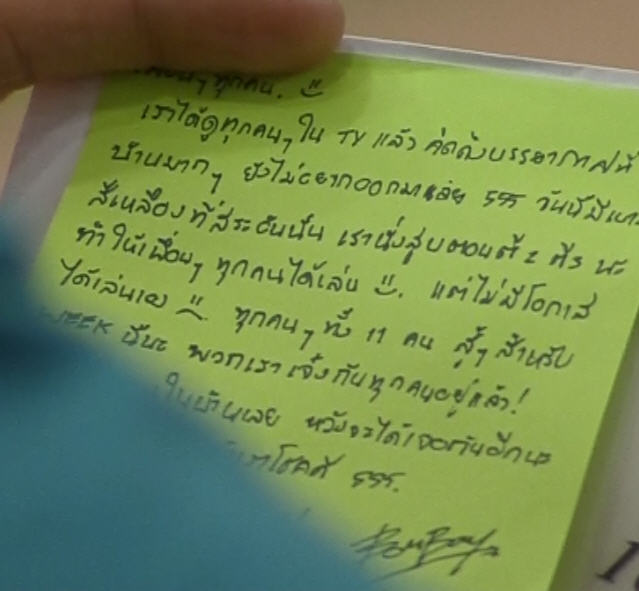 เพื่อนๆ ทุกคน.
เราได้ดูทุกคนๆ ใน TV แล้ว คิดถึงบรรยากาศที่
บ้านมากๆ ยังไม่อยากออกมาเลย 555 วันนี้มี
สีเหลืองที่สระอันนั้น เรานั่ง ตอนตี 2 ตี 3 นะ
ทำให้เพื่อนๆ ทุกคนได้เล่น แต่ไม่มีโอกาส
ได้เล่นเอง ทุกคนๆ ทั้ง 11 คน สู้ๆ สำหรับ
WEEK นี้นะ พวกเราเจ๋งกันทุกคนอยู่แล้ว!
ในบ้านเลย หวังจะได้เจอกันอีกนะ
เราโชคดี 555.